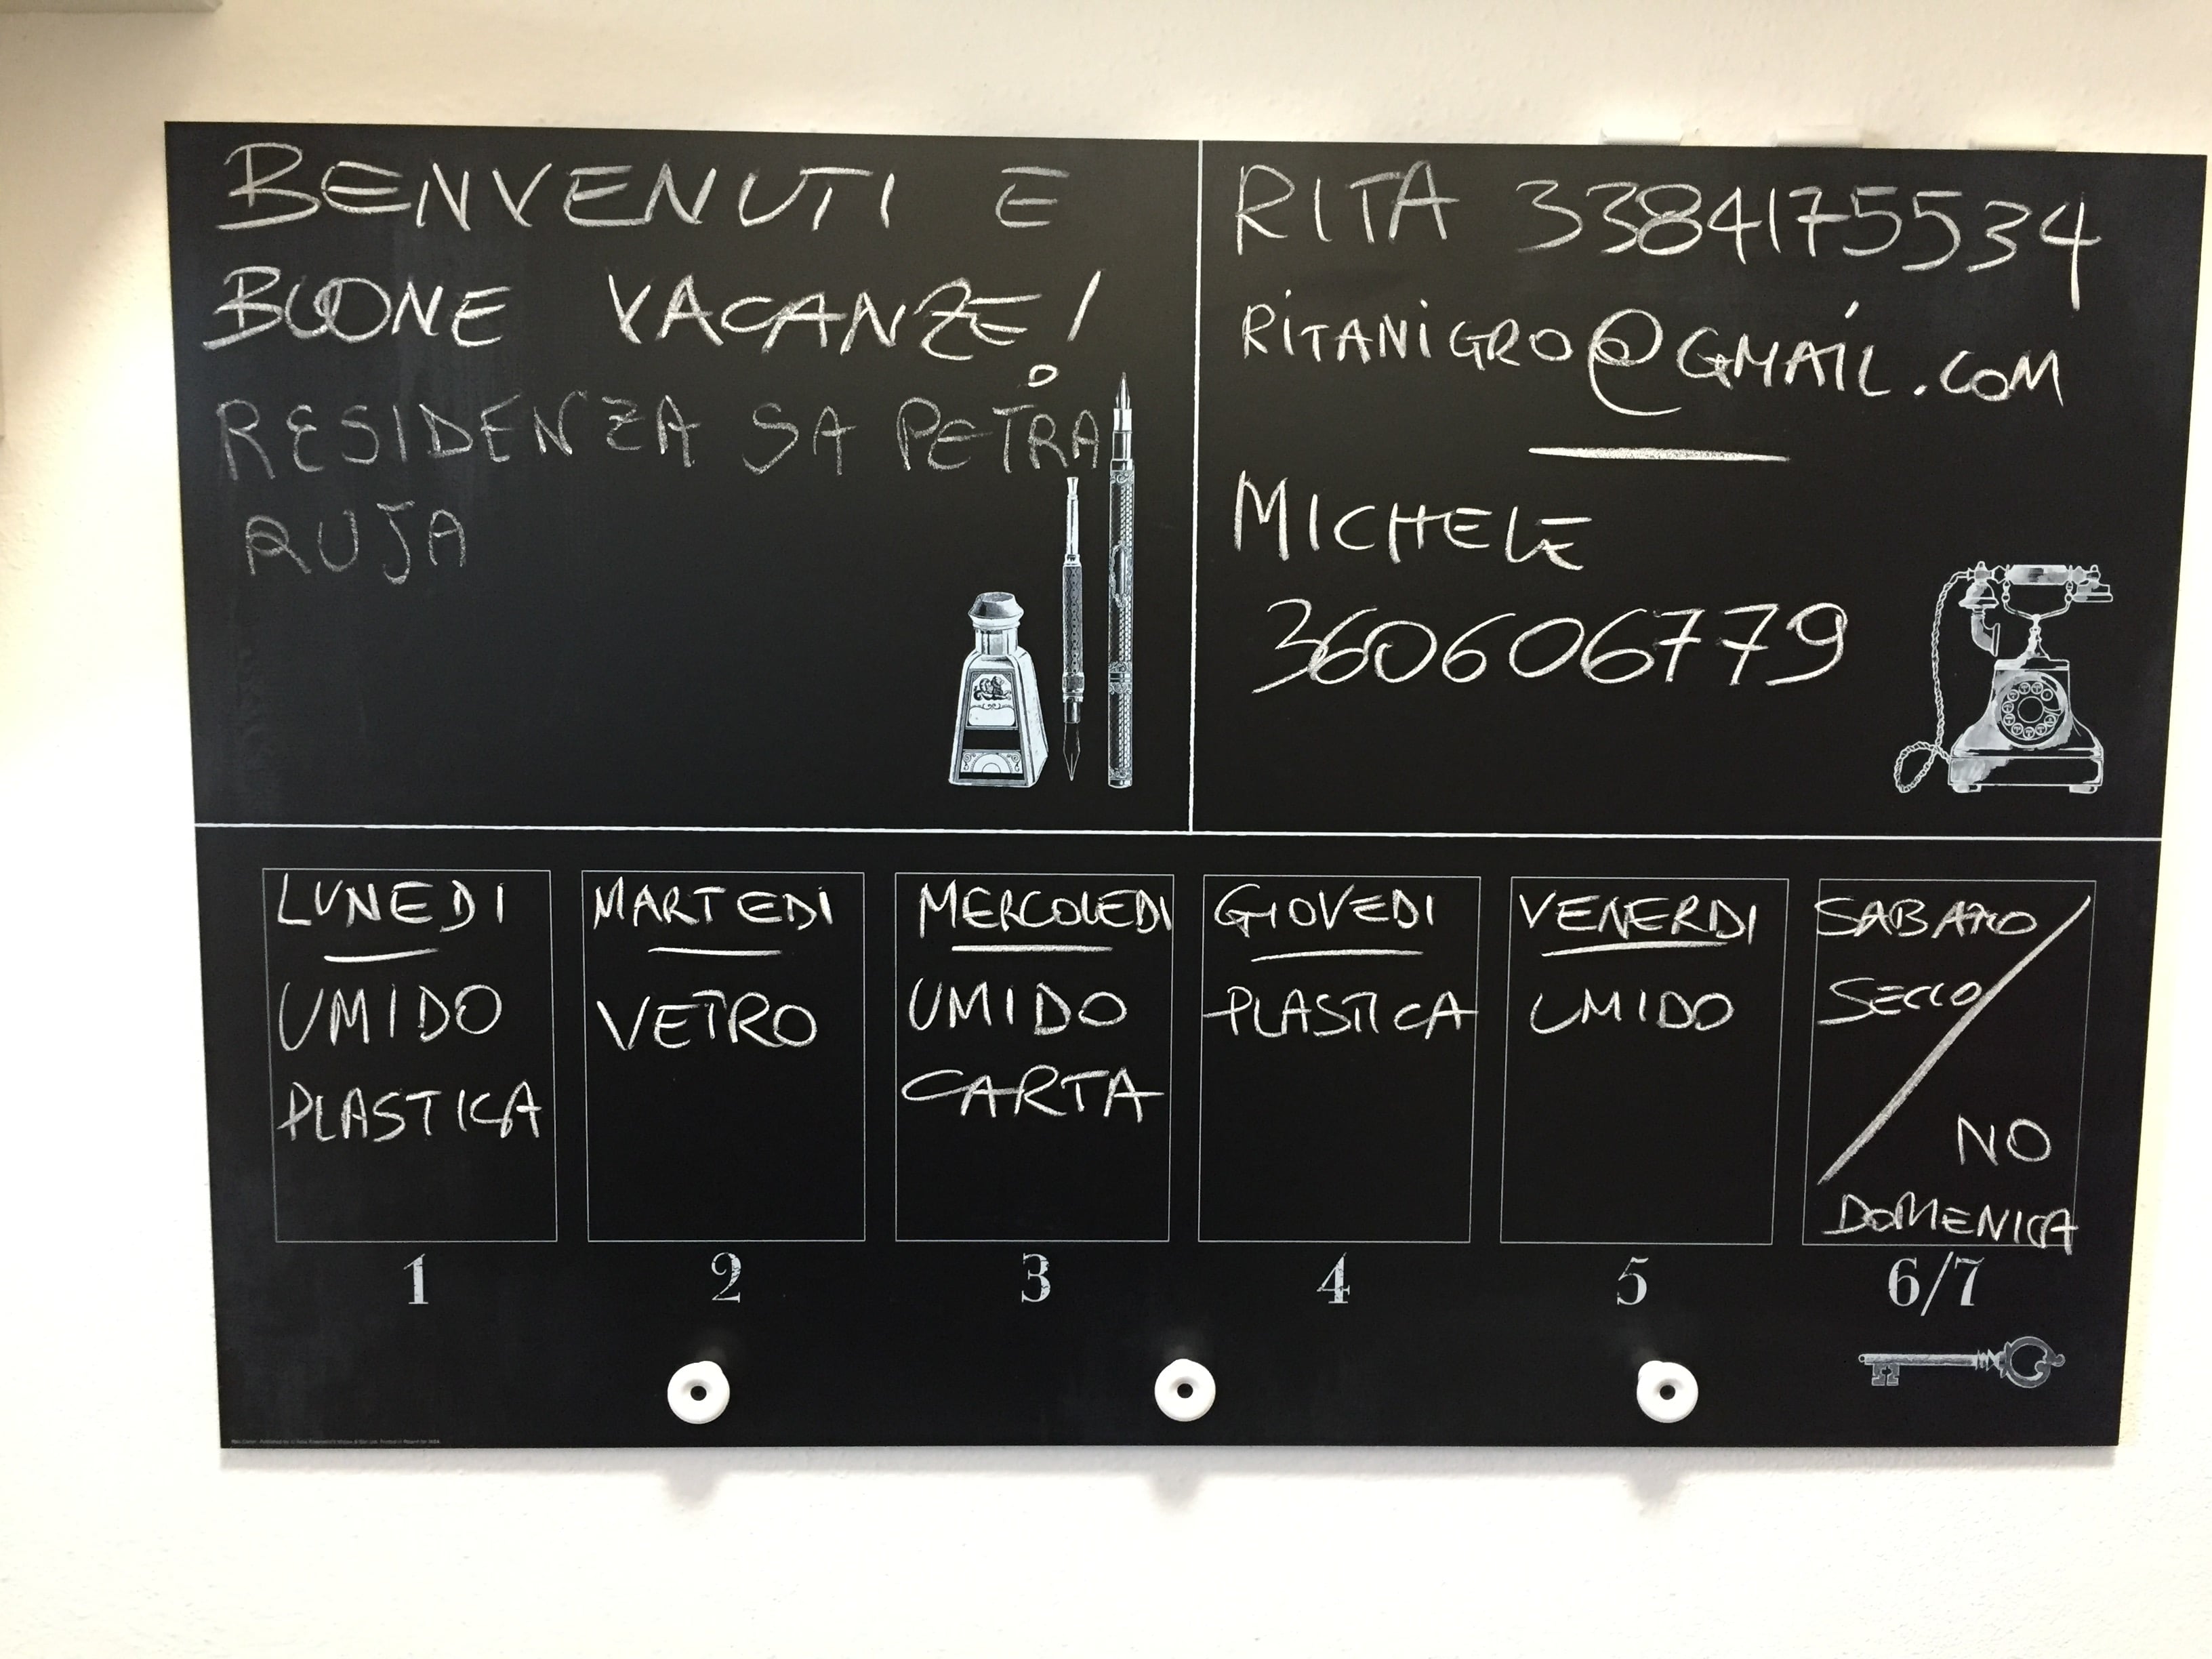 BENVENUTI E
BUONE VACANZE!
RESIDENZA SA PETRA
RUJA
RITA 3384175534
RITANIGRO@GMAIL.COM
MICHELE
360606779
LUNEDI
UMIDO
PLASTICA
1
MARTEDI
VETRO
2
MERCOLEDI
UMIDO
CARTA
3
GIOVEDI
PLASTICA
4
VENERDI
UMIDO
5
SABATO
SECCO
NO
DOMENICA
6/7